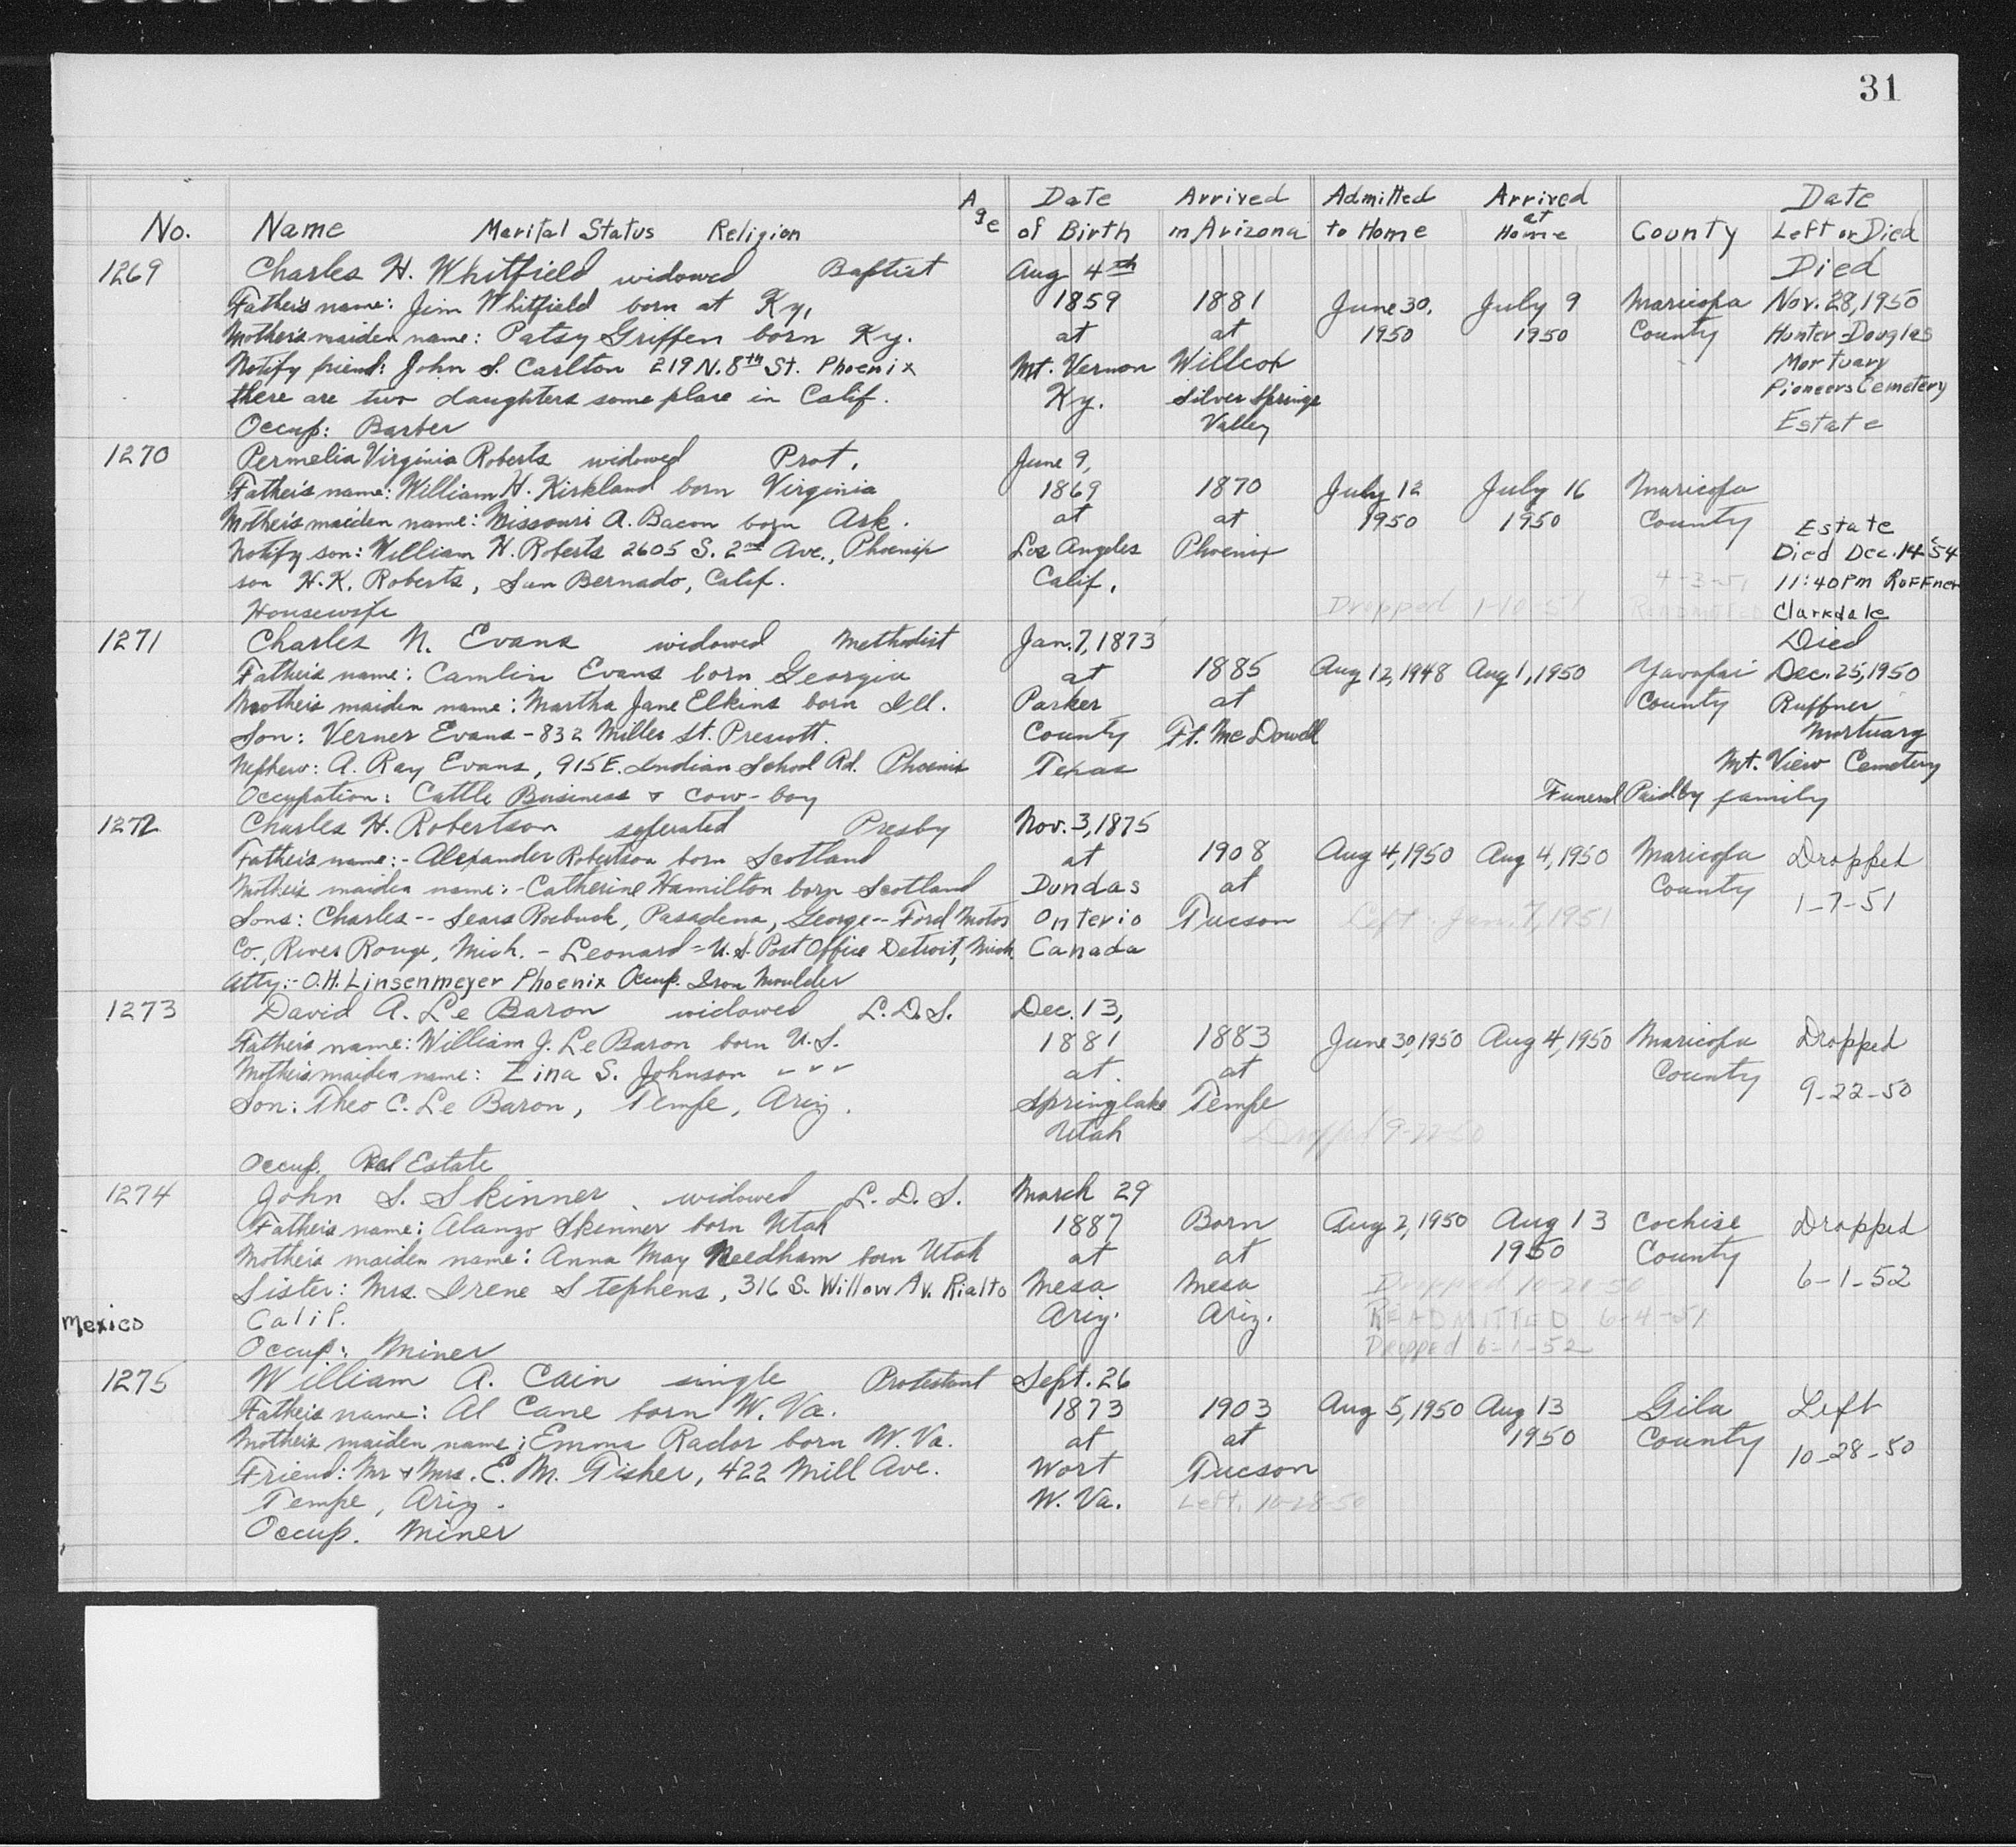 31
A Date Arrived Admitted Arrived Date
No. Name Marital Status Religion ge of Birth in Arizona to Home at Home County Left or Died
1269 Charles H. Whitfield widowed Baptist Aug 4th Died
Father's name: Jim Whitfield born at Ky, 1859 1881 June 30, July 9 Maricopa Nov. 28, 1950
Mother's maiden name: Patsy Griffen born Ky. at at 1950 1950 County Hunter-Douglas
Notify friend: John S. Carlton 219 N. 8th St. Phoenix Mt. Vernon Willcox Mortuary
there are two daughters some place in Calif. Ky. Silver Springs Pioneers Cemetery
Occup: Barber Valley Estate
1270 Permelia Virginia Roberts widowed Prot. June 9,
Father's name: William H. Kirkland born Virginia 1869 1870 July 12 July 16 Maricopa
Mother's maiden name: Missouri A. Bacon born Ark. at at 1950 1950 County Estate
Notify son: William H. Roberts 2605 S. 2nd Ave., Phoenix Los Angeles Phoenix Died Dec. 14 '54
son H.K. Roberts, San Bernado, Calif. Calif. 4-3-51 11:40 Pm Ruffner
Housewife Dropped 1-10-51 Readmitted Clarkdale
1271 Charles N. Evans widowed Methodist Jan. 7, 1873 Died
Father's name: Camlin Evans born Georgia at 1885 Aug 12, 1948 Aug 1, 1950 Yavapai Dec. 25, 1950
Mother's maiden name: Martha Jane Elkins born Ill. Parker at County Ruffner
Son: Verner Evans - 832 Miller St. Prescott. County Ft. McDowell Mortuary
Nephew: A. Ray Evans, 915 E. Indian School Rd. Phoenix Texas Mt. View Cemetery
Occupation: Cattle Business & Cow-boy Funeral Paid by family
1272 Charles H. Robertson seperated Presby Nov. 3, 1875
Father's name:- Alexander Robertson born Scotland at 1908 Aug 4, 1950 Aug 4, 1950 Maricopa Dropped
Mother's maiden name:- Catherine Hamilton born Scotland Dundas at County 1-7-51
Sons: Charles -- Sears Roebuck, Pasadena, George -- Ford Motor Onterio Tucson Left - Jan. 7, 1951
Co., River Rouge, Mich. - Leonard - U.S. Post Office Detroit, Mich. Canada
Atty:- O.H. Linsenmeyer Phoenix Occup. Iron Moulder
1273 David A. Le Baron widowed L.D.S. Dec. 13,
Father's name: William J. Le Baron born U.S. 1881 1883 June 30, 1950 Aug 4, 1950 Maricopa Dropped
Mother's maiden name: Zina S. Johnson " " " at at County 9-22-50
Son: Theo C. Le Baron, Tempe, Ariz. Springlake Tempe
Utah Dropped 9-22-50
Occup. Real Estate
1274 John S. Skinner widowed L.D.S. March 29
Father's name: Alanzo Skinner born Utah 1887 Born Aug 2, 1950 Aug 13 Cochise Dropped
Mother's maiden name: Anna May Needham born Utah at at 1950 County
Sister: Mrs. Irene Stephens, 316 S. Willow Av. Rialto Mesa Mesa Dropped 10-20-50 6-1-52
Mexico Calif. Ariz. Ariz. READMITTED 6-4-51
Occup: Miner Dropped 6-1-52
1275 William A. Cain single Protestant Sept. 26
Father's name: Al Cane born W. Va. 1873 1903 Aug 5, 1950 Aug 13 Gila Left
Mother's maiden name: Emma Rador born W. Va. at at 1950 County 10-28-50
Friend: Mr & Mrs. E. M. Fisher, 422 Mill Ave. Wort Tucson
Tempe, Ariz. W. Va. Left. 10-28-50
Occup. Miner